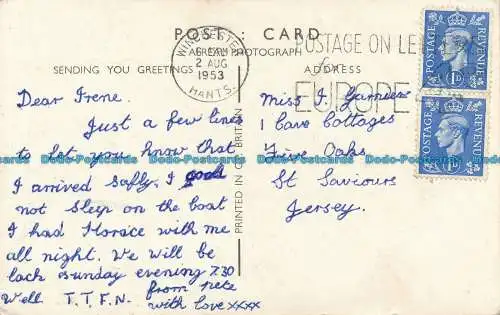 POST : CARD
A REAL PHOTOGRAPH
SENDING YOU GREETINGS
ADDRESS
WINCHESTER
2 AUG
1953
HANTS.
POSTAGE ON LE
for
EUROPE
POSTAGE REVENUE
1D
POSTAGE REVENUE
1D
Dear Irene.
Just a few lines
to let you know that
I arrived safly. I
not sleep on the boat
I had Horace with me
all night. We will be
back sunday evening 7.30
Well T.T.F.N. from pete
with love xxxx
PRINTED IN BRITAIN
Miss I.
1 Cave Cottages
Five Oaks
St Saviours
Jersey.
Dodo-Postcards Dodo-Postcards Dodo-Postcards Dodo-Postcards Dodo-Postcards